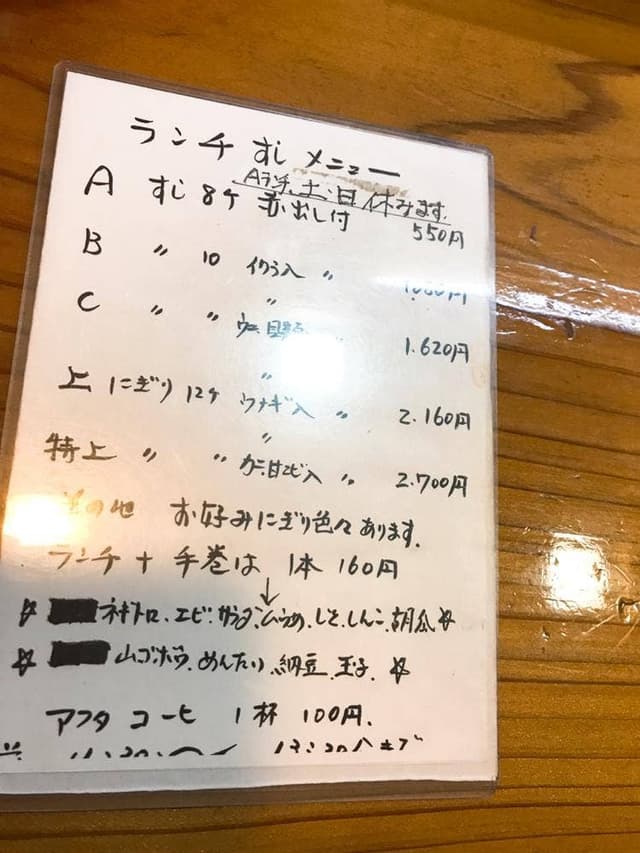 ランチ すし メニュー
Aランチ 土、日 休みます.
A すし 8ケ 赤出し付 550円
B 〃 10 イクラ入 〃
〃
C 〃 〃 ウニ 1.620円
〃
上 にぎり 12ケ ウナギ入 〃 2.160円
〃
特上 〃 〃 カニ.甘エビ入 〃 2.700円
その他 お好みにぎり色々あります.
ランチ + 手巻は 1本 160円
↓
☆ ネギトロ、エビ、サラダ、しそ、しんこ、胡瓜☆
☆ 山ゴボウ、めんたい、納豆、玉子、☆
アフタ コーヒ 1杯 100円.